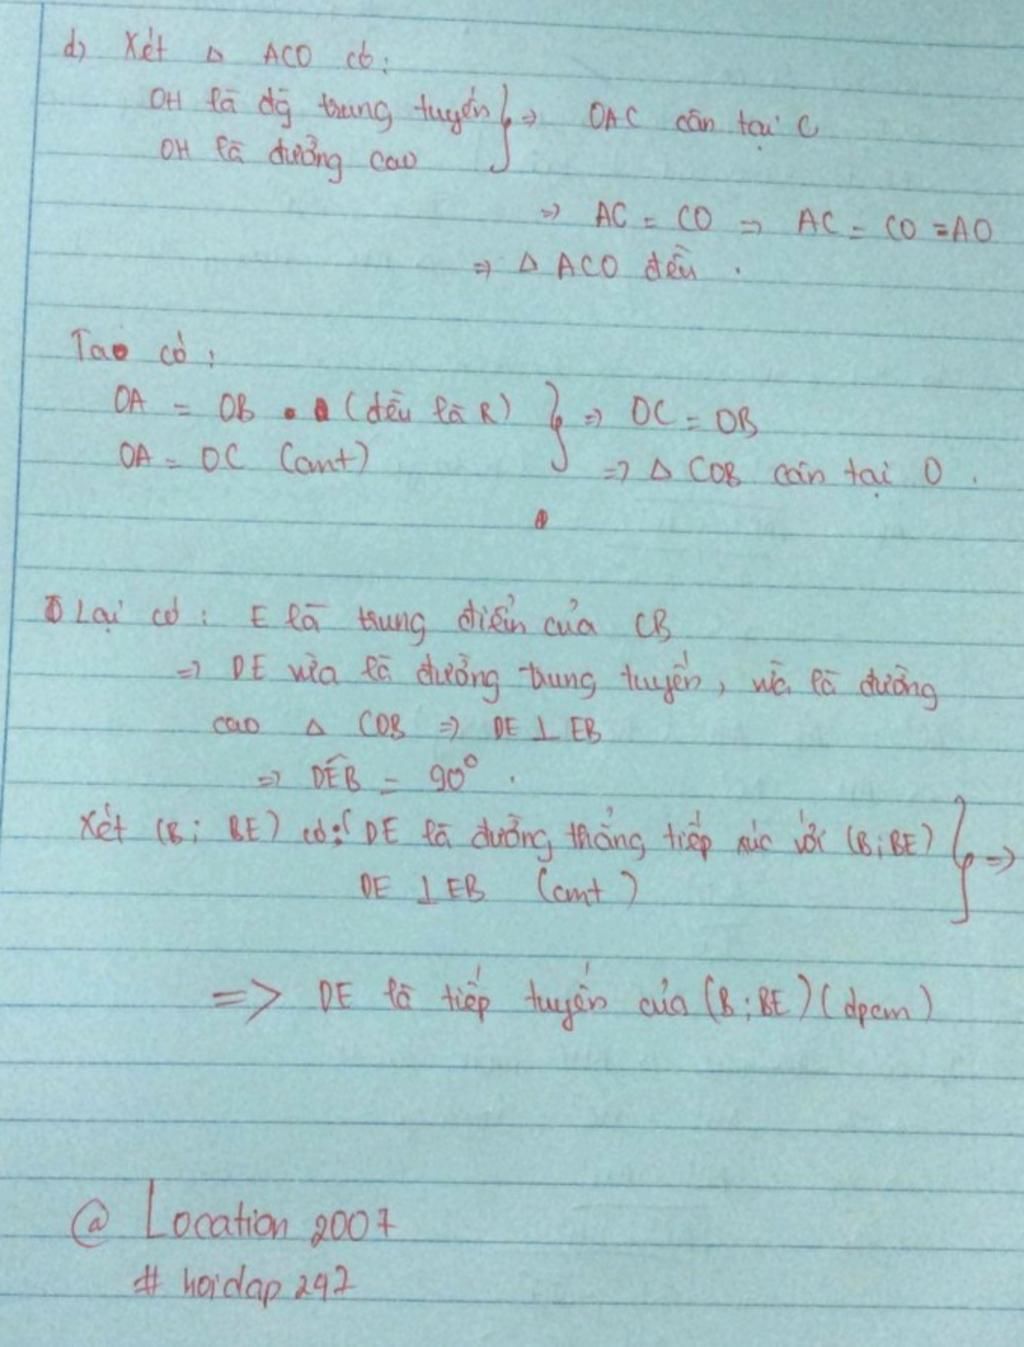 d) Xét Δ ACO có:
OH là đg trung tuyến } => OAC cân tại C
OH là đường cao
=> AC = CO => AC = CO = AO
=> Δ ACO đều .
Ta có :
OA = OB (đều là R) } => OC = OB
OA = OC (cmt) => Δ COB cân tại O .
Lại có : E là trung điểm của CB
=> OE vừa là đường trung tuyến, vừa là đường
cao Δ COB => OE ⊥ EB
=> OEB = 90° .
Xét (B; BE) có: OE là đường thẳng tiếp xúc với (B;BE) } =>
OE ⊥ EB (cmt)
=> OE là tiếp tuyến của (B;BE) (dpcm)
@ Location 2007
# hoidap 247